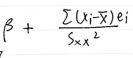 β + Σ(xᵢ-x̄)eᵢ / Sxx²